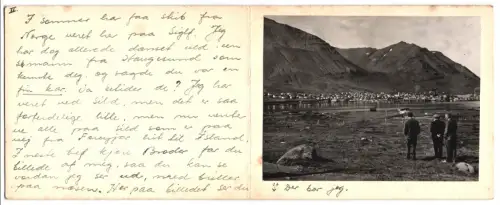 II
I sommer har faa skib fra
Norge været her paa Sigluf. Jeg
har dog allerede danset med en
sømann fra Haugesund som
kendte dig, og sagde du var en
fin kar. Ja
du? Jeg har
været ved Sild, men det er saa
forfærdelig lille, men nu venter
vi alle paa Sild som er paa
vej fra Færøyjar hit til Island.
I næste brev kjære Broder får du
billede af mig, saa du kan se
vordan jeg ser ud, med briller
paa næsen. Her paa billedet ser du
Der bor jeg.